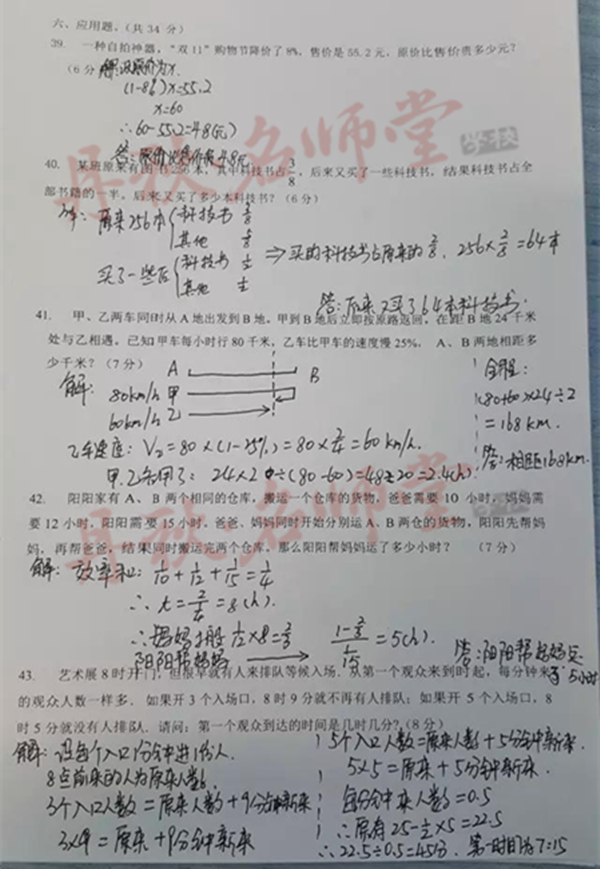 六、应用题。(共 34 分)
39. 一种自拍神器,“双 11”购物节降价了 8%,售价是 55.2 元,原价比售价贵多少元?
(6 分 解:设原价为x.
(1-8%)x=55.2
x=60
∴60-55.2=4.8(元)
答:原价比售价贵4.8元.
40. 某班原来有图书256本,其中科技书占3/8,后来又买了一些科技书,结果科技书占全
部书籍的一半,后来又买了多少本科技书?(6 分)
解:原来256本 科技书 3/8
其他 5/8
买了一些后 科技书 1/2
其他 1/2
⇒买的科技书占原来的2/8, 256×2/8=64本
答:后来又买了64本科技书.
41. 甲、乙两车同时从 A 地出发到 B 地,甲到 B 地后立即按原路返回,在距 B 地 24 千米
处与乙相遇。已知甲车每小时行 80 千米,乙车比甲车的速度慢 25%, A、B 两地相距多
少千米?(7 分)
解:
A B
80km/h 甲
60km/h 乙
乙车速度:V乙=80×(1-25%)=80×3/4=60 km/h.
甲.乙各用了:24×2÷(80-60)=48÷20=2.4(h).
全程:
(80+60)×2.4÷2
=168km.
答:相距168km.
42. 阳阳家有 A、B 两个相同的仓库,搬运一个仓库的货物,爸爸需要 10 小时,妈妈需
要 12 小时,阳阳需要 15 小时,爸爸、妈妈同时开始分别运 A、B 两仓的货物,阳阳先帮妈
妈,再帮爸爸,结果同时搬运完两个仓库,那么阳阳帮妈妈运了多少小时? (7分)
解:效率和:1/10+1/12+1/15=1/4
∴t=2/(1/4)=8(h).
∴妈妈搬 1/12×8=2/3
阳阳帮妈妈 → (1-2/3)/(1/15)=5(h).
答:阳阳帮妈妈运
了5小时
43. 艺术展 8 时开门,但很早就有人来排队等候入场。从第一个观众来到时起,每分钟来
的观众人数一样多. 如果开 3 个入场口,8 时 9 分就不再有人排队;如果开 5 个入场口,8
时 5 分就没有人排队. 请问:第一个观众到达的时间是几时几分?(8 分)
解:设每个入口1分钟进1份人.
8点前来的人为原来人数.
3个入口人数=原来人数+9分钟新来
3×9=原来+9分钟新来
5个入口人数=原来人数+5分钟新来.
5×5=原来+5分钟新来.
每分钟来人数=0.5
∴原有25-1/2×5=22.5
∴22.5÷0.5=45分. 第一时间为7:15